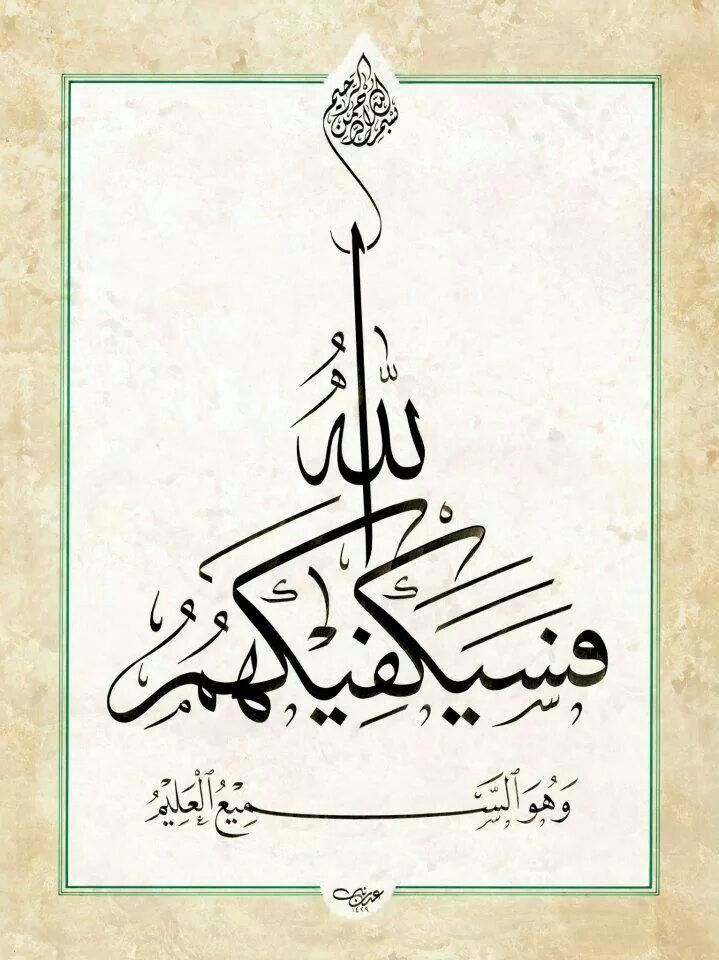 بسم الله الرحمن الرحيم
فَسَيَكْفِيكَهُمُ اللّٰهُ
وَهُوَ ٱلسَّمِيعُ ٱلْعَلِيمُ
١٤٢٩